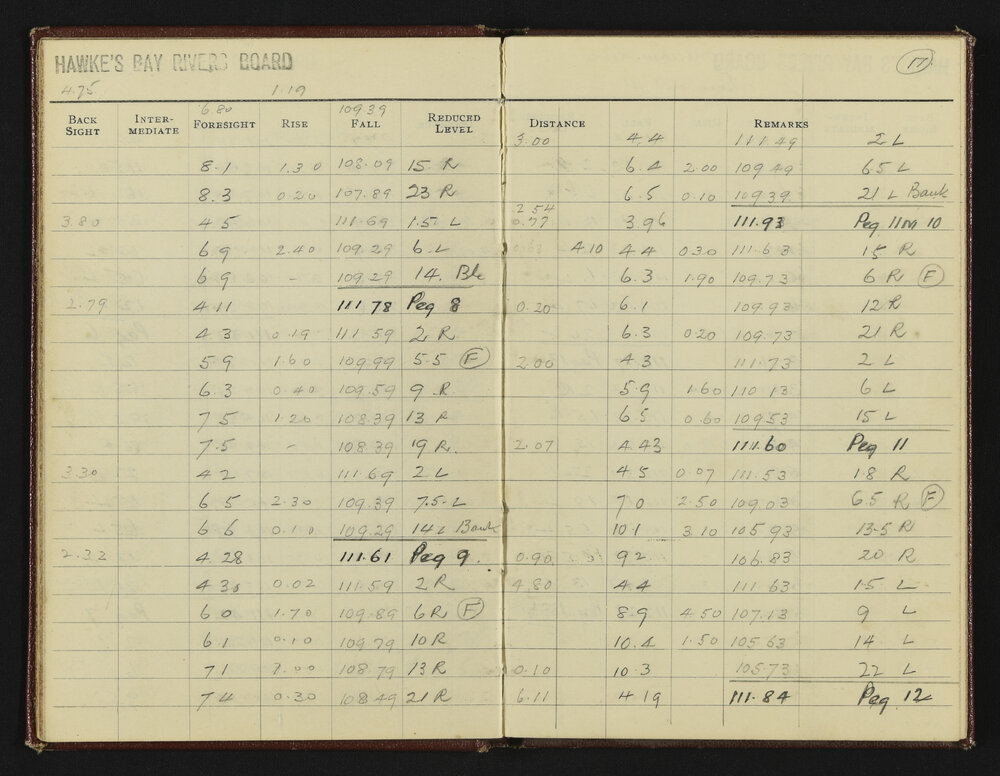 HAWKE'S BAY RIVERS BOARD
4.75 1.19
6.80 109.39
BACK SIGHT INTER-MEDIATE FORESIGHT RISE FALL REDUCED LEVEL
8.1 1.30 108.09 15 R
8.3 0.20 107.89 23 R
3.80 4 5 111.69 1.5 L
6 9 2.40 109.29 6 L
6 9 - 109.29 14. Bk
2.79 4 11 111.78 Peg 8
4 3 0.19 111.59 2 R
5 9 1.60 109.99 5.5 F
6.3 0.40 109.59 9 R
7 5 1.20 108.39 13 R
7.5 - 108.39 19 R.
3.30 4 2 111.69 2 L
6 5 2.30 109.39 7.5 L
6 6 0.10 109.29 14 L Bank
2.32 4.28 111.61 Peg 9.
4 30 0.02 111.59 2 R
6 0 1.70 109.89 6 R F
6.1 0.10 109.79 10 R
7 1 1.00 108.79 13 R
7 4 0.30 108.49 21 R
17
DISTANCE REMARKS
3.00 4.4 111.49 2 L
6.4 2.00 109.49 6.5 L
6.5 0.10 109.39 21 L Bank
2.54
0.77 3.96 111.93 Peg 11m 10
0.63 4.10 4 4 0.30 111.63 15 R
6.3 1.90 109.73 6 R F
0.20 6.1 109.93 12 R
6.3 0.20 109.73 21 R
2.00 4 3 111.73 2 L
5.9 1.60 110.13 6 L
6 5 0.60 109.53 15 L
2.07 4.43 111.60 Peg 11
4 5 0.07 111.53 1.8 R
7 0 2.50 109.03 6.5 R F
10 1 3.10 105.93 13.5 R
0.90 9 2 106.83 20 R
4.80 4.4 111.63 1.5 L
8 9 4.50 107.13 9 L
10.4 1.50 105.63 14 L
0.10 10.3 105.73 22 L
6.11 4 19 111.84 Peg 12